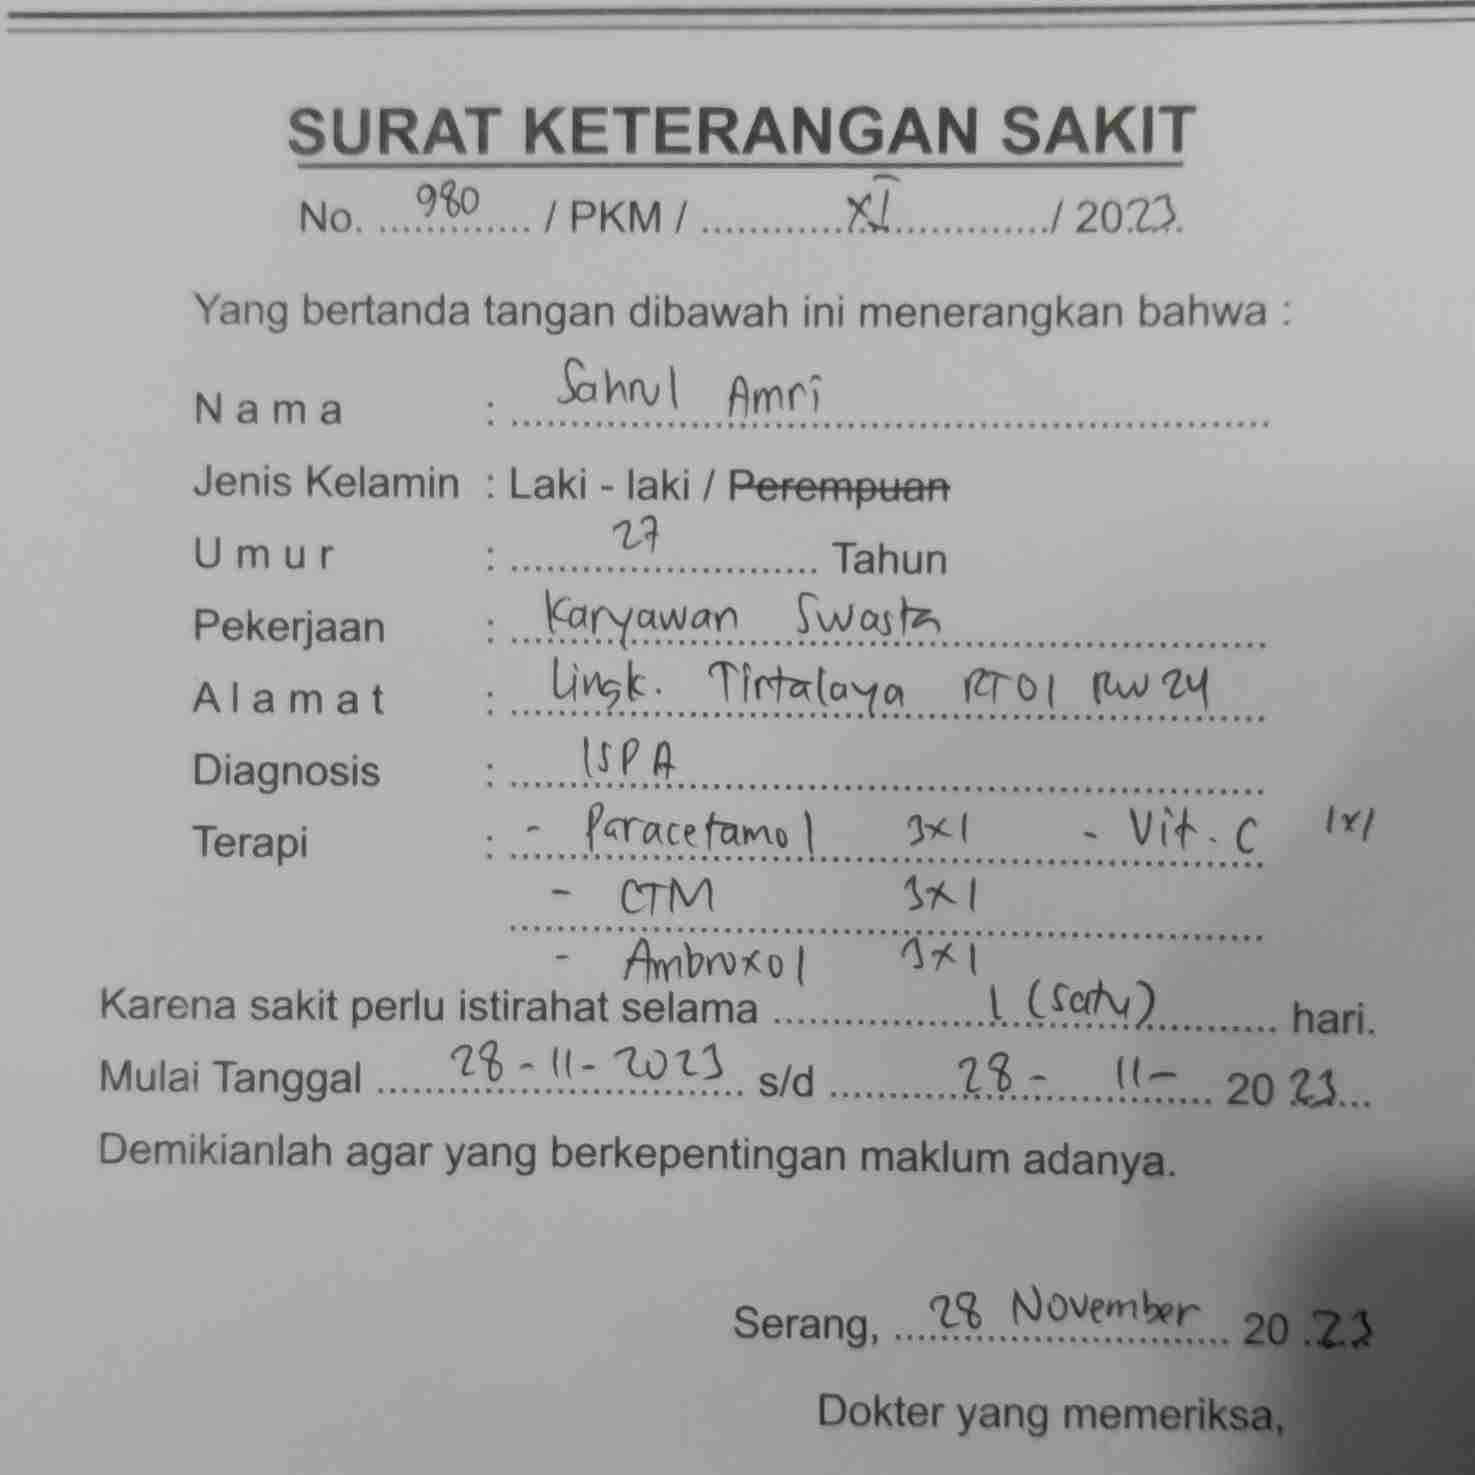 SURAT KETERANGAN SAKIT
No. 980 / PKM / XI / 2023
Yang bertanda tangan dibawah ini menerangkan bahwa :
Nama : Sahrul Amri
Jenis Kelamin : Laki - laki / Perempuan
Umur : 27 Tahun
Pekerjaan : Karyawan Swasta
Alamat : Lingk. Tirtalaya RT 01 RW 24
Diagnosis : ISPA
Terapi : - Paracetamol 3x1 - Vit. C 1x1
- CTM 3x1
- Ambroxol 3x1
Karena sakit perlu istirahat selama 1 (satu) hari.
Mulai Tanggal 28-11-2023 s/d 28-11-2023
Demikianlah agar yang berkepentingan maklum adanya.
Serang, 28 November 2023
Dokter yang memeriksa,